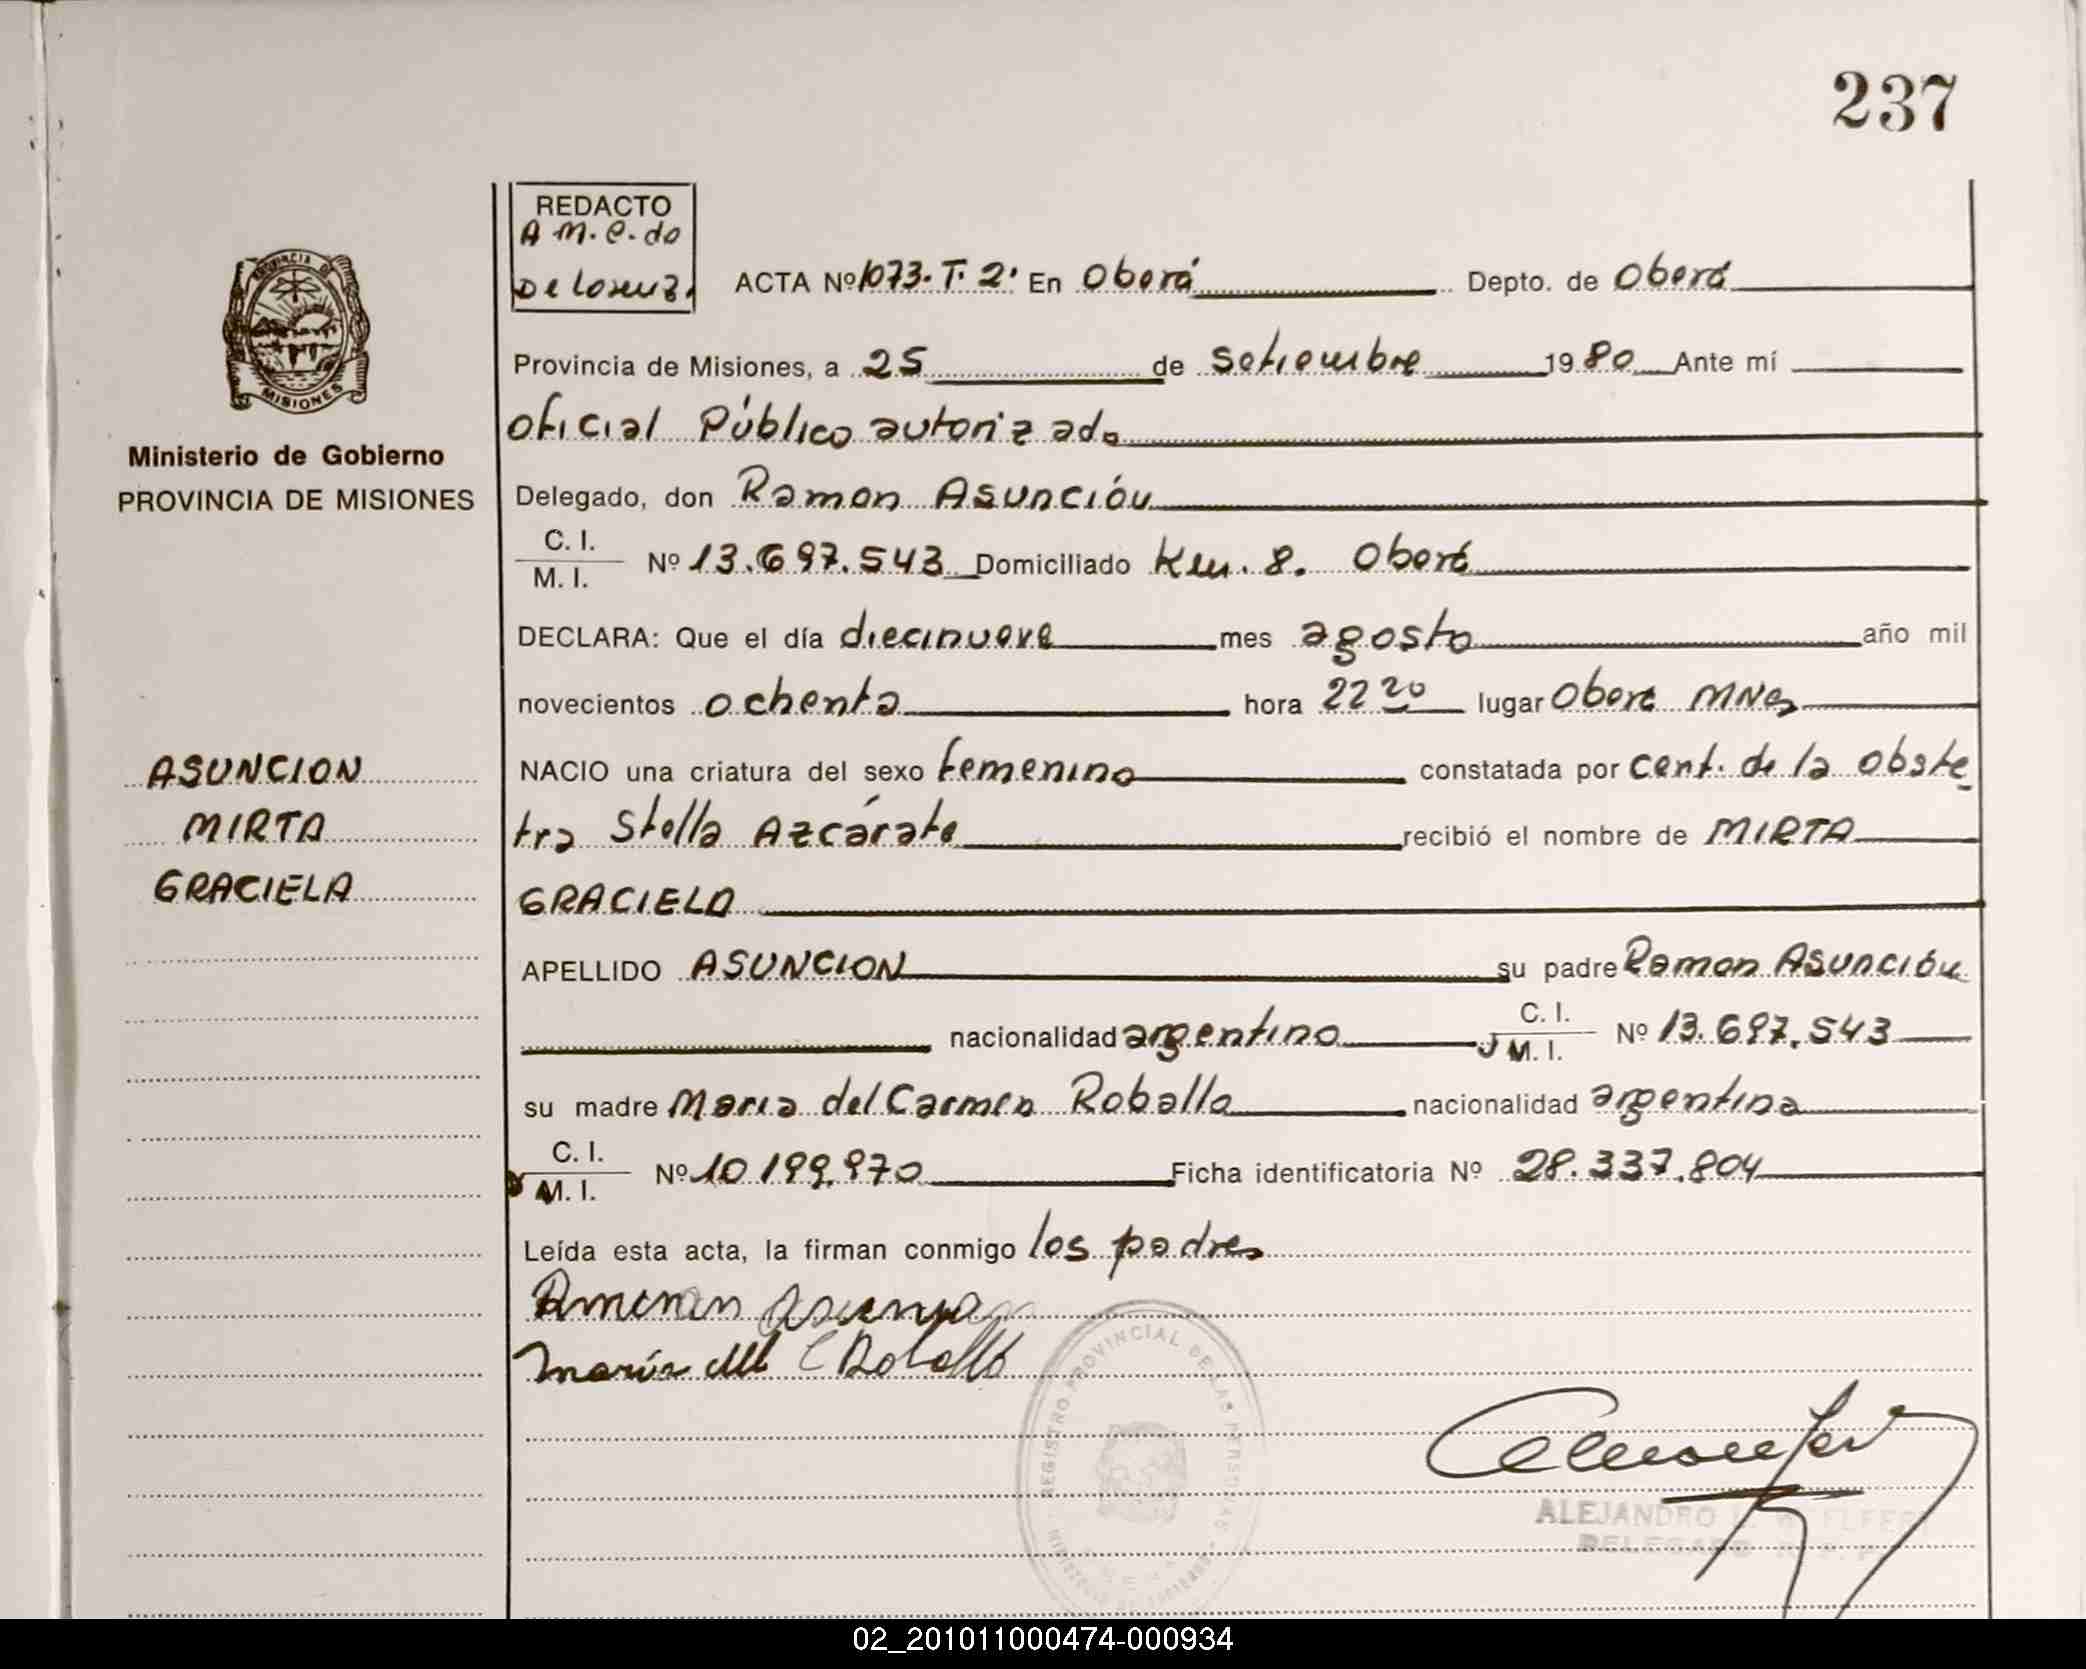 237
REDACTO
A m. e. do
De Lorenz.
ACTA Nº 1073. T. 2º En Oberá Depto. de Oberá
PROVINCIA DE
MISIONES
Ministerio de Gobierno
PROVINCIA DE MISIONES
Provincia de Misiones, a 25 de Setiembre 1980 Ante mí
oficial Público autorizado
Delegado, don Ramon Asunción
C. I.
M. I. Nº 13.697.543 Domiciliado Km. 8. Oberá
DECLARA: Que el día diecinueve mes agosto año mil
novecientos ochenta hora 22 20 lugar Oberá MNes
ASUNCION
MIRTA
GRACIELA
NACIO una criatura del sexo femenino constatada por cert. de la obste
tra Stella Azcárate recibió el nombre de MIRTA
GRACIELA
APELLIDO ASUNCION su padre Ramon Asunción
nacionalidad argentino C. I.
M. I. Nº 13.697.543
su madre Maria del Carmen Roballo nacionalidad argentina
C. I.
M. I. Nº 10.199.970 Ficha identificatoria Nº 28.337.804
Leída esta acta, la firman conmigo los padres
Maria del C Roballo
REGISTRO PROVINCIAL DE LAS PERSONAS
ALEJANDRO
DELEGADO
02_201011000474-000934